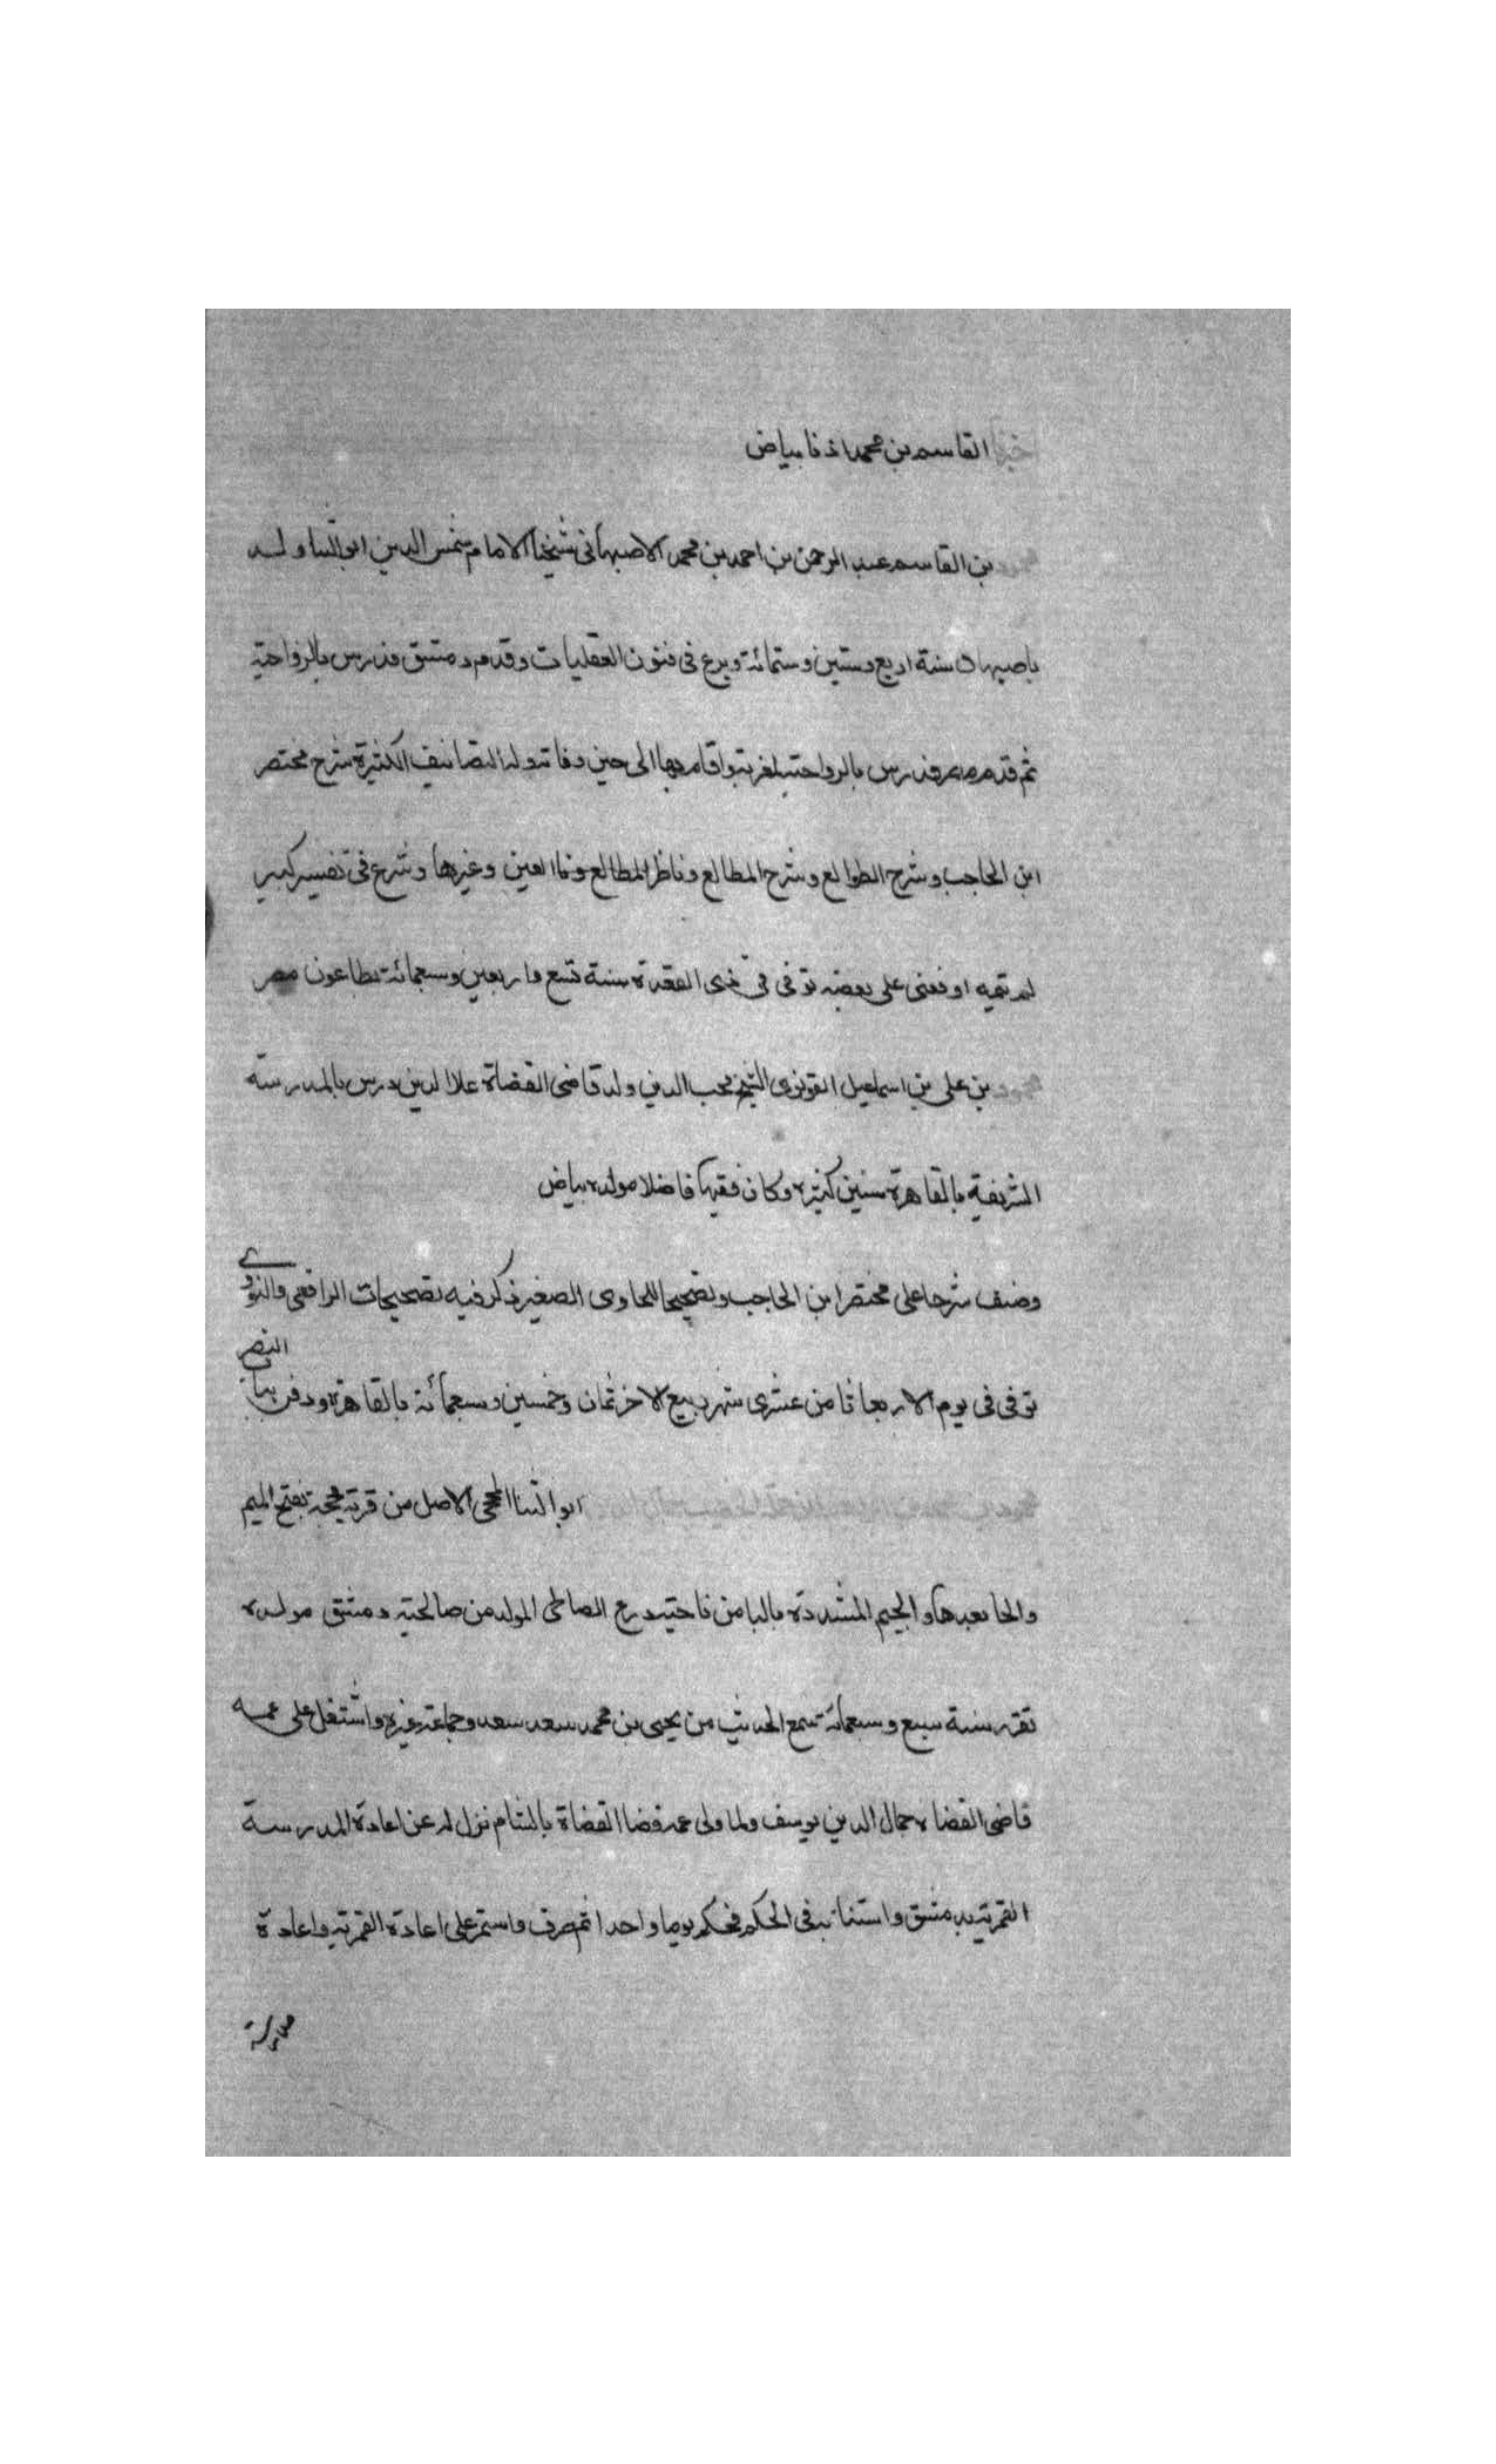 القاسم بن محمد اذفا بياض
بن القاسم عبد الرحمن بن احمد بن محمد الاصبهاني شيخنا الامام شمس الدين ابو الثنا ولد
باصبهان سنة اربع وستين وستمائة وبرع في فنون العقليات وقدم دمشق فدرس بالرواحية
ثم قدم مصر فدرس بالرواحية واقام بها الى حين وفاته وله التصانيف الكثيرة شرح مختصر
ابن الحاجب وشرح الطوالع وشرح المطالع وناظر المطالع ونا العين وغيرها وشرع في تفسير كبير
لم يتمه اوقفني على بعضه توفى في ذى القعدة سنة تسع واربعين وسبعمائة بطاعون مصر
محمود بن على بن اسماعيل القونوى الشيخ محب الدين ولد قاضى القضاة علا الدين درس بالمدرسة
الشريفية بالقاهرة سنين كثيره وكان فقيها فاضلا مولده بياض
وصنف شرحا على مختصر ابن الحاجب وتصحيحا للحاوى الصغير ذكر فيه تصحيحات الرافعى والنووى
توفى فى يوم الاربعا ثامن عشرى شهر ربيع الاخر ثمان وخمسين وسبعمائة بالقاهرة ودفن بباب النصر
ابو الثنا المحجى الاصل من قرية محجة بفتح الميم
والحا بعدها والجيم المشددة بالبا من ناحية درع الصالحى المولد من صالحية دمشق مولده
تقر سنة سبع وسبعمائة سمع الحديث من يحيى بن محمد سعد سعد وجماعة غيره واشتغل على عمه
قاضى القضاه جمال الدين يوسف ولما ولى عمه قضا القضاة بالشام نزل له عن اعادة المدرسة
القمرية بدمشق واستنابه فى الحكم فحكم يوما واحدا ثم صرف واستمر على اعادة القمرية واعادة
مدرسة